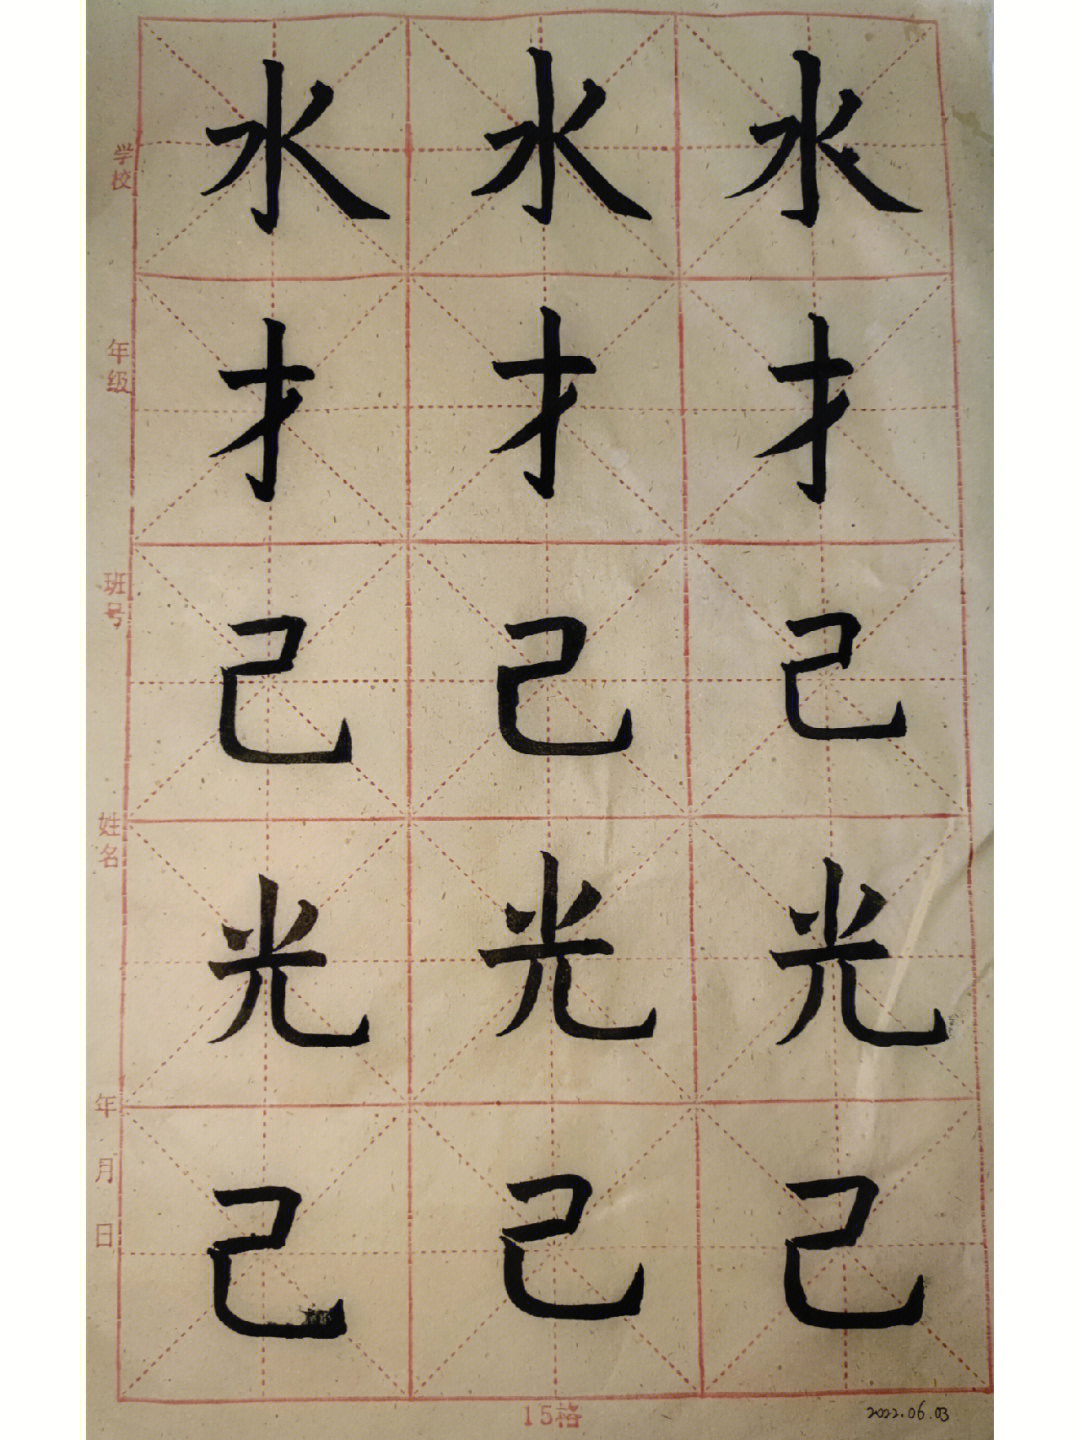 水水水
学校
才才才
年级
己己己
班号
光光光
姓名
己己己
年月日
15格
2022.06.03